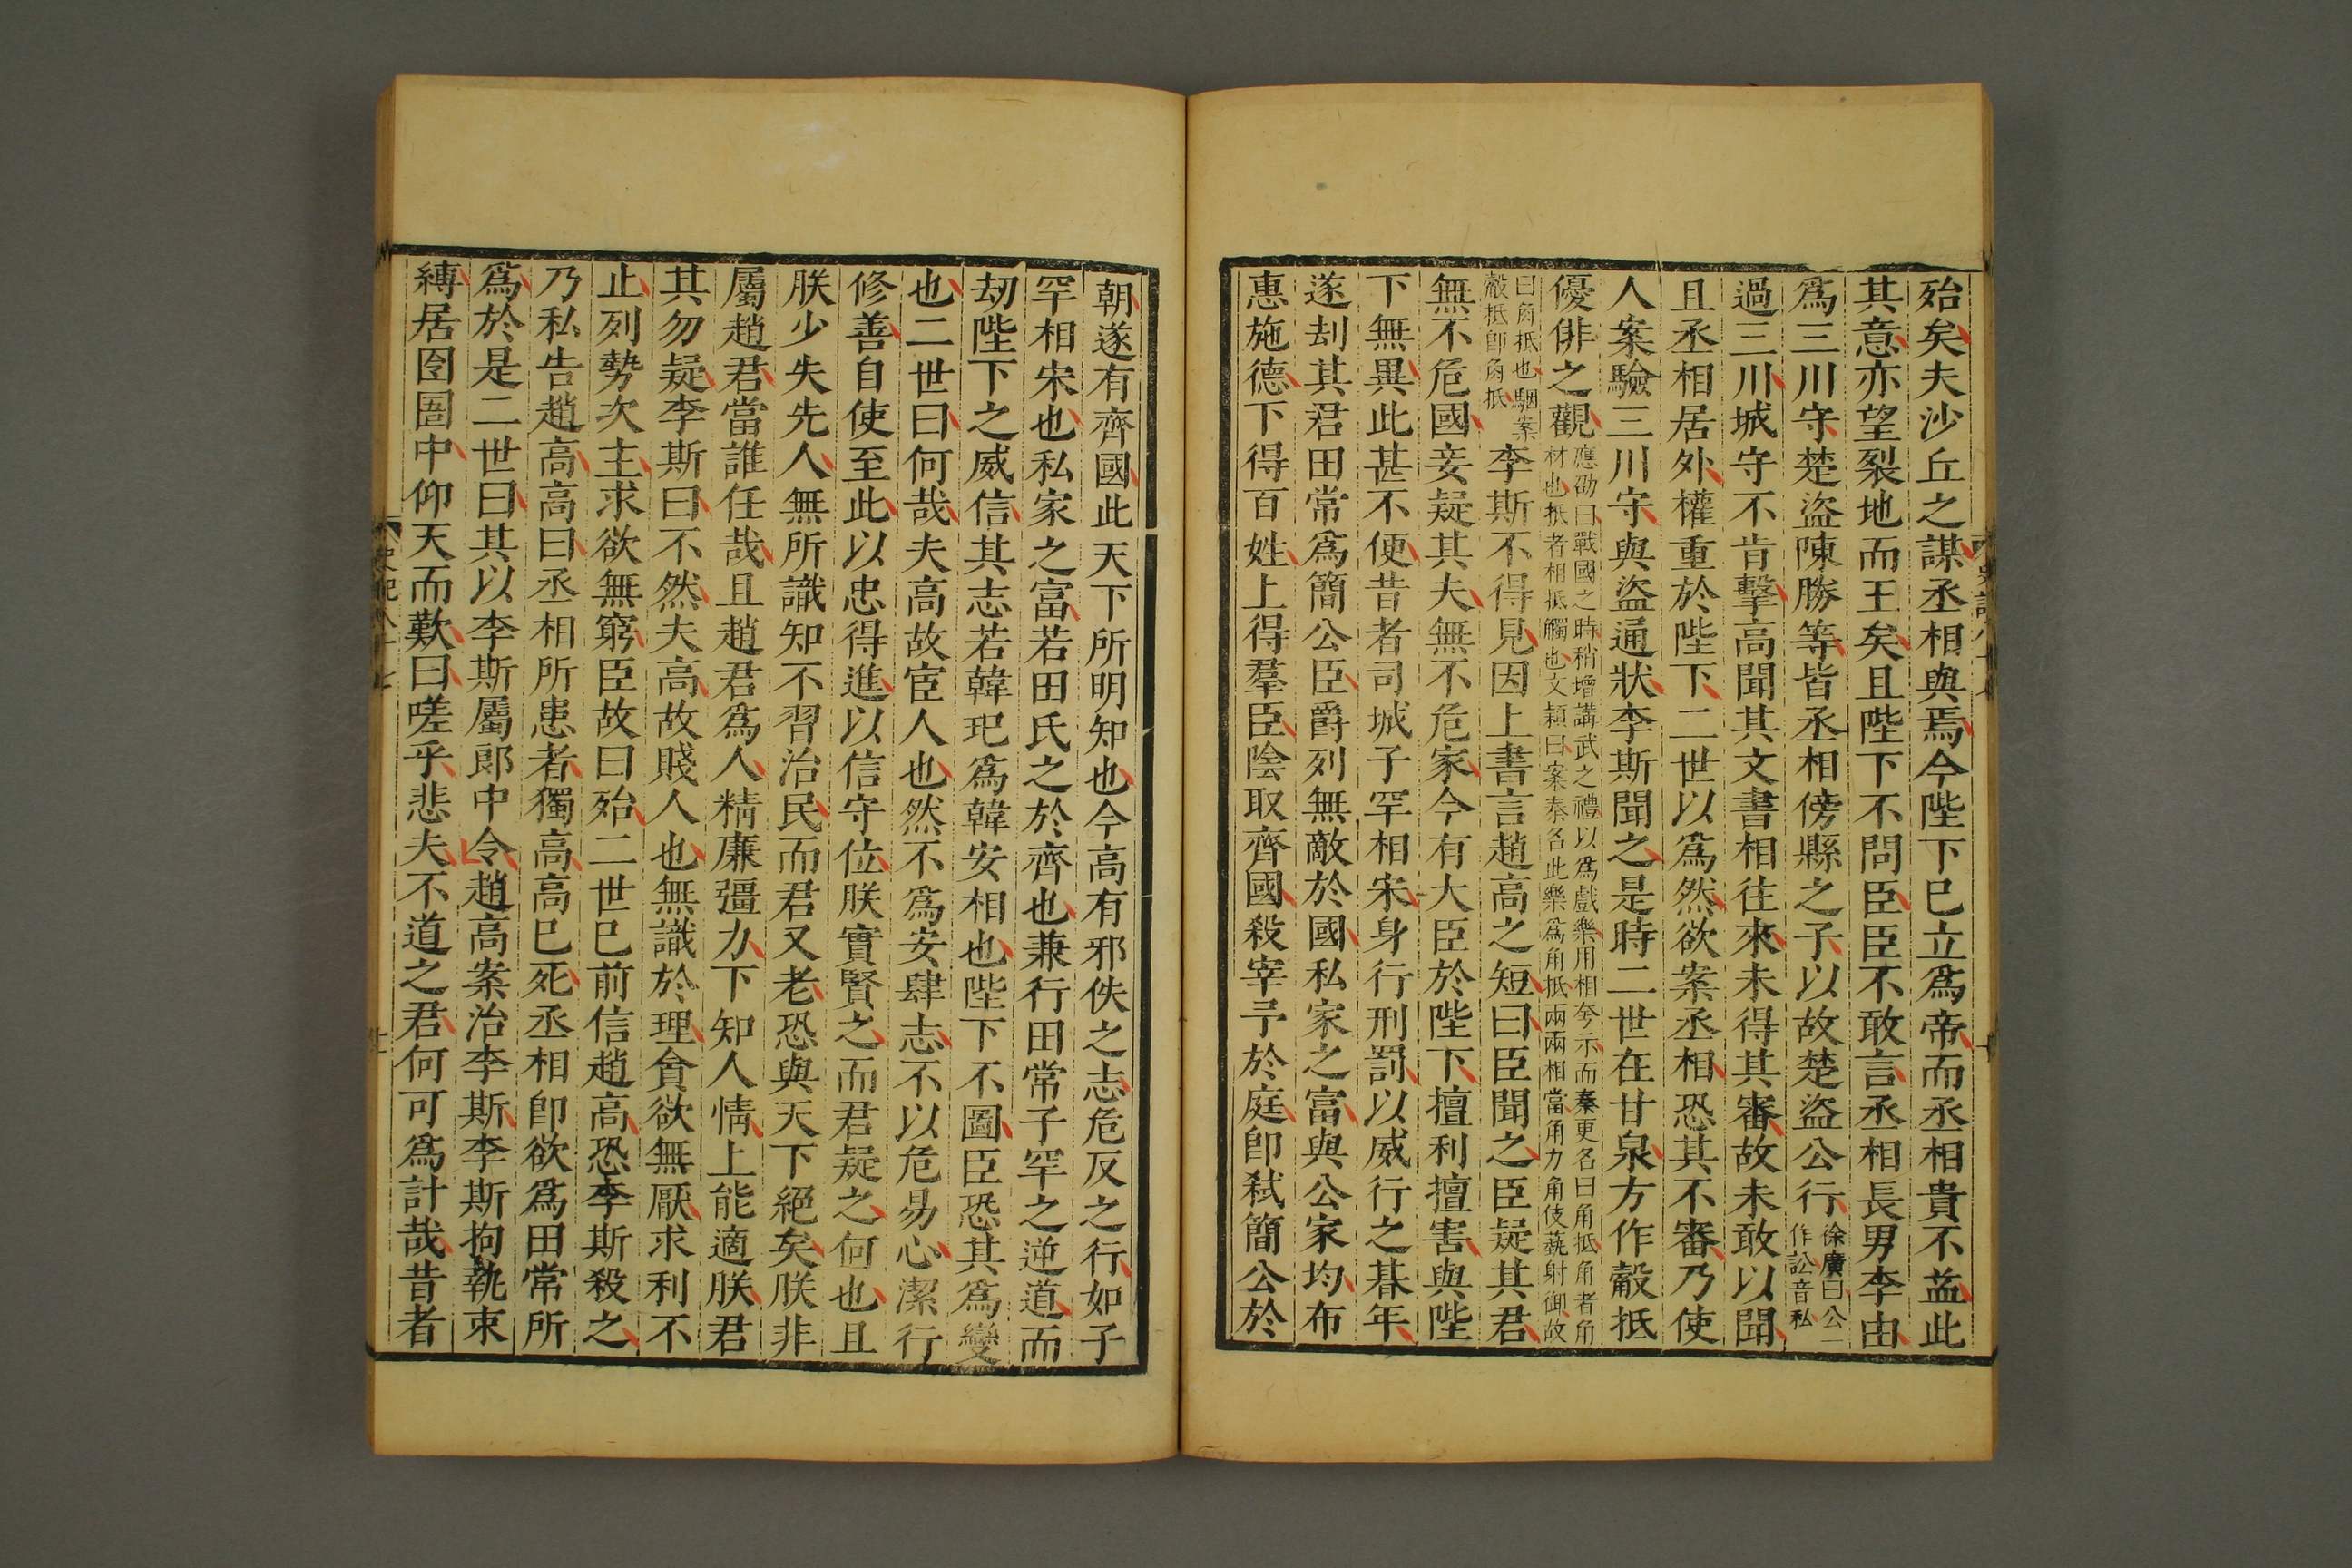 殆矣夫沙丘之謀丞相與焉今陛下已立爲帝而丞相貴不益此
其意亦望裂地而王矣且陛下不問臣臣不敢言丞相長男李由
爲三川守楚盜陳勝等皆丞相傍縣之子以故楚盜公行
徐廣曰公一
作訟音私
過三川城守不肯擊高聞其文書相往來未得其審故未敢以聞
且丞相居外權重於陛下二世以爲然欲案丞相恐其不審乃使
人案驗三川守與盜通狀李斯聞之是時二世在甘泉方作觳抵
優俳之觀
應劭曰戰國之時稍增講武之禮以爲戲樂用相夸示而秦更名曰角抵角者角
材也抵者相抵觸也文穎曰案秦名此樂爲角抵兩兩相當角力角伎蓺射御故
曰角抵也駰案
觳抵卽角抵
李斯不得見因上書言趙高之短曰臣聞之臣疑其君
無不危國妾疑其夫無不危家今有大臣於陛下擅利擅害與陛
下無異此甚不便昔者司城子罕相宋身行刑罰以威行之朞年
遂刦其君田常爲簡公臣爵列無敵於國私家之富與公家均布
惠施德下得百姓上得羣臣陰取齊國殺宰予於庭卽弒簡公於
朝遂有齊國此天下所明知也今高有邪佚之志危反之行如子
罕相宋也私家之富若田氏之於齊也兼行田常子罕之逆道而
劫陛下之威信其志若韓玘爲韓安相也陛下不圖臣恐其爲變
也二世曰何哉夫高故宦人也然不爲安肆志不以危易心潔行
修善自使至此以忠得進以信守位朕實賢之而君疑之何也且
朕少失先人無所識知不習治民而君又老恐與天下絕矣朕非
屬趙君當誰任哉且趙君爲人精廉彊力下知人情上能適朕君
其勿疑李斯曰不然夫高故賤人也無識於理貪欲無厭求利不
止列勢次主求欲無窮臣故曰殆二世已前信趙高恐李斯殺之
乃私告趙高高曰丞相所患者獨高高已死丞相卽欲爲田常所
爲於是二世曰其以李斯屬郎中令趙高案治李斯李斯拘執束
縛居囹圄中仰天而歎曰嗟乎悲夫不道之君何可爲計哉昔者
史記八十七